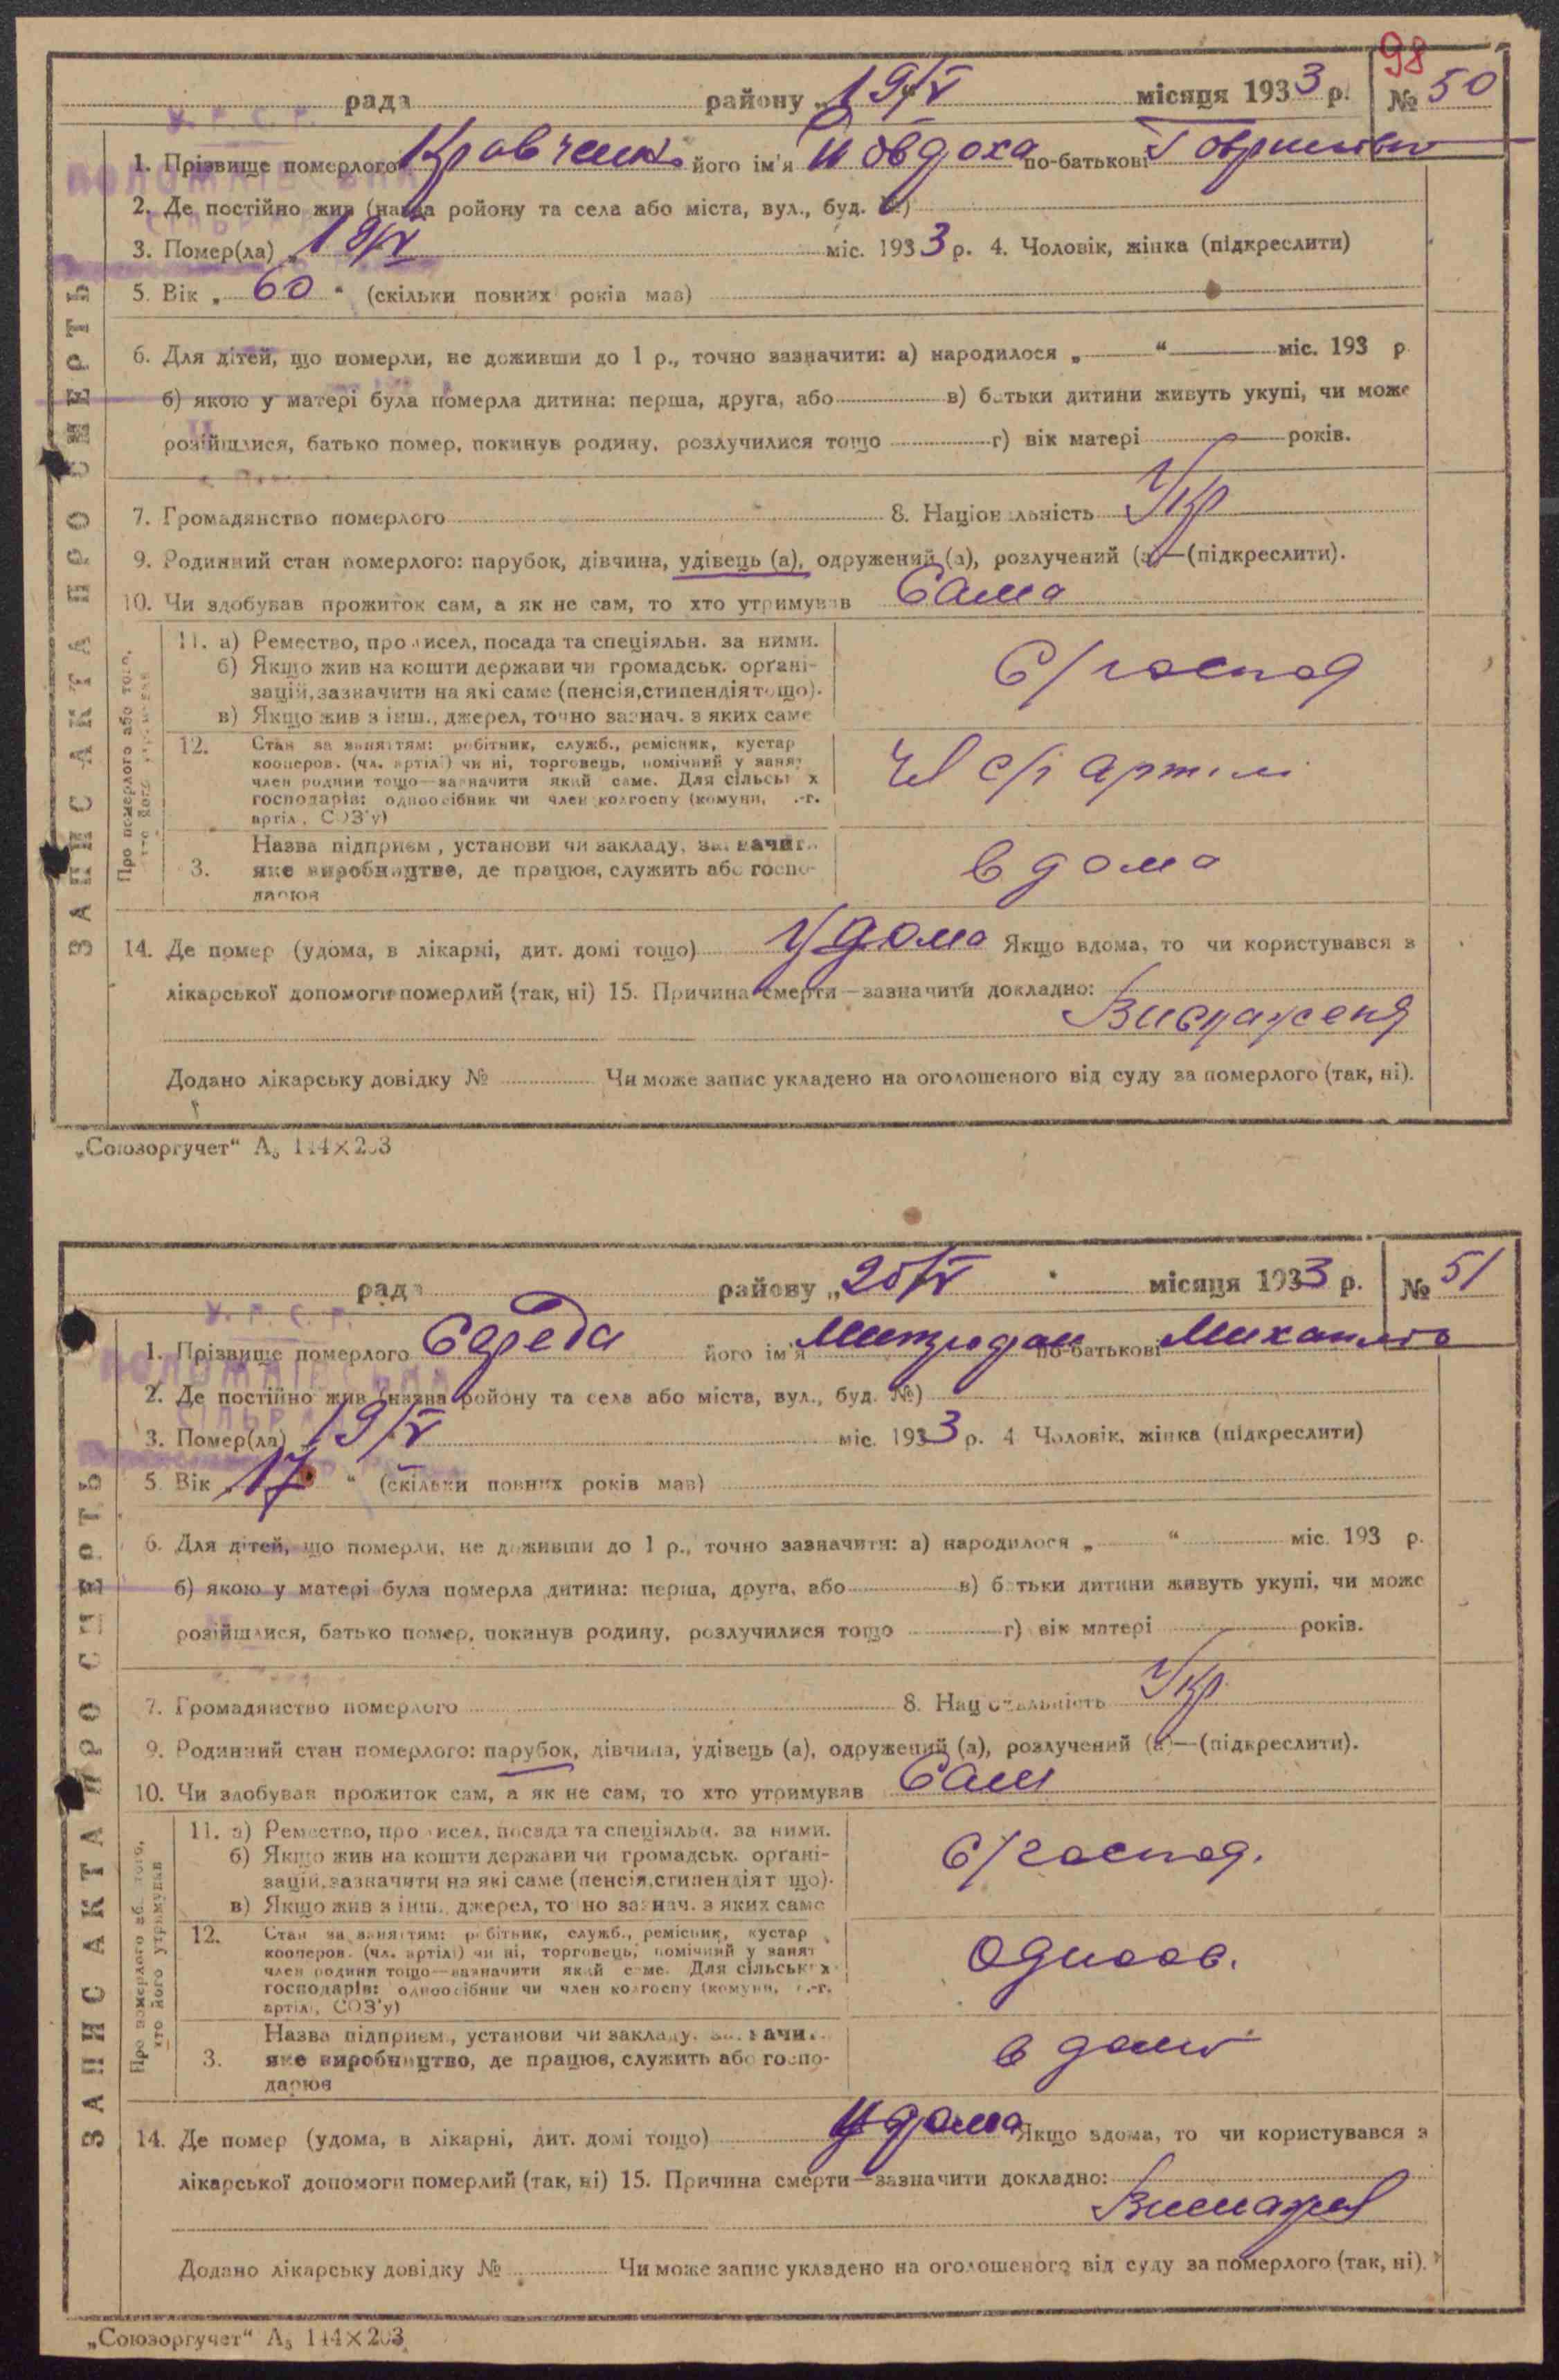 98
рада району „19/V місяця 1933 р. № 50
У. Р. С. Р.
1. Прізвище померлого Кравченко його ім'я Йовдоха по-батькові
2. Де постійно жив (назва ройону та села або міста, вул., буд. №)
СІЛЬРАДА
3. Помер(ла) „19/V міс. 1933 р. 4. Чоловік, жінка (підкреслити)
5. Вік „60“ (скільки повних років мав)
6. Для дітей, що померли, не доживши до 1 р., точно зазначити: а) народилося „ “ міс. 193 р.
б) якою у матері була померла дитина: перша, друга, або в) батьки дитини живуть укупі, чи може
розійшлися, батько помер, покинув родину, розлучилися тощо г) вік матері років.
7. Громадянство померлого 8. Національність Укр
9. Родинний стан померлого: парубок, дівчина, удівець (а), одружений (а), розлучений (а)—(підкреслити).
10. Чи здобував прожиток сам, а як не сам, то хто утримував Сама
ЗАПИС АКТА ПРО СМЕРТЬ
Про померлого або того, хто його утримував
11. а) Ремество, промисел, посада та спеціяльн. за ними.
б) Якщо жив на кошти держави чи громадськ. орґані-
зацій, зазначити на які саме (пенсія, стипендія тощо).
в) Якщо жив з інш., джерел, точно зазнач. з яких саме
С/господ
12. Стан за заняттям: робітник, служб., ремісник, кустар
кооперов. (чл. артілі) чи ні, торговець, помічний у занят
член родини тощо—зазначити який саме. Для сільських
господарів: одноосібник чи член колгоспу (комуни, с.-г.
артіл., СОЗ'у)
Чл с/г артілі
Назва підприєм., установи чи закладу, зазначит.
3. яке виробництво, де працюв, служить або госпо-
дарюв
в дома
14. Де помер (удома, в лікарні, дит. домі тощо) Удома Якщо вдома, то чи користувався з
лікарської допомоги померлий (так, ні) 15. Причина смерти—зазначити докладно:
Виснаженя
Додано лікарську довідку № Чи може запис укладено на оголошеного від суду за померлого (так, ні).
„Союзоргучет“ А₅ 144×203
рада району „20/V місяця 1933 р. № 51
У. Р. С. Р.
1. Прізвище померлого Середа його ім'я по-батькові
2. Де постійно жив (назва ройону та села або міста, вул., буд. №)
СІЛЬРАДА
3. Помер(ла) 19/V міс. 1933 р. 4 Чоловік, жінка (підкреслити)
5. Вік „17“ (скільки повних років мав)
6. Для дітей, що померли, не доживши до 1 р., точно зазначити: а) народилося „ “ міс. 193 р.
б) якою у матері була померла дитина: перша, друга, або в) батьки дитини живуть укупі, чи може
розійшлися, батько помер, покинув родину, розлучилися тощо г) вік матері років.
7. Громадянство померлого 8. Національність Укр
9. Родинний стан померлого: парубок, дівчина, удівець (а), одружений (а), розлучений (а)—(підкреслити).
10. Чи здобував прожиток сам, а як не сам, то хто утримував Сам
ЗАПИС АКТА ПРО СМЕРТЬ
Про померлого або того, хто його утримував
11. а) Ремество, промисел, посада та спеціяльн. за ними.
б) Якщо жив на кошти держави чи громадськ. орґані-
зацій, зазначити на які саме (пенсія, стипендія тощо).
в) Якщо жив з інш., джерел, точно зазнач. з яких саме
С/господ.
12. Стан за заняттям: робітник, служб., ремісник, кустар
кооперов. (чл. артілі) чи ні, торговець, помічний у занят
член родини тощо—зазначити який саме. Для сільських
господарів: одноосібник чи член колгоспу (комуни, с.-г.
артіл., СОЗ'у)
Одноос.
Назва підприєм., установи чи закладу, зазначи.
3. яке виробництво, де працюв, служить або госпо-
дарюв
в дома
14. Де помер (удома, в лікарні, дит. домі тощо) Удома Якщо вдома, то чи користувався з
лікарської допомоги померлий (так, ні) 15. Причина смерти—зазначити докладно:
Додано лікарську довідку № Чи може запис укладено на оголошеного від суду за померлого (так, ні).
„Союзоргучет“ А₅ 144×203